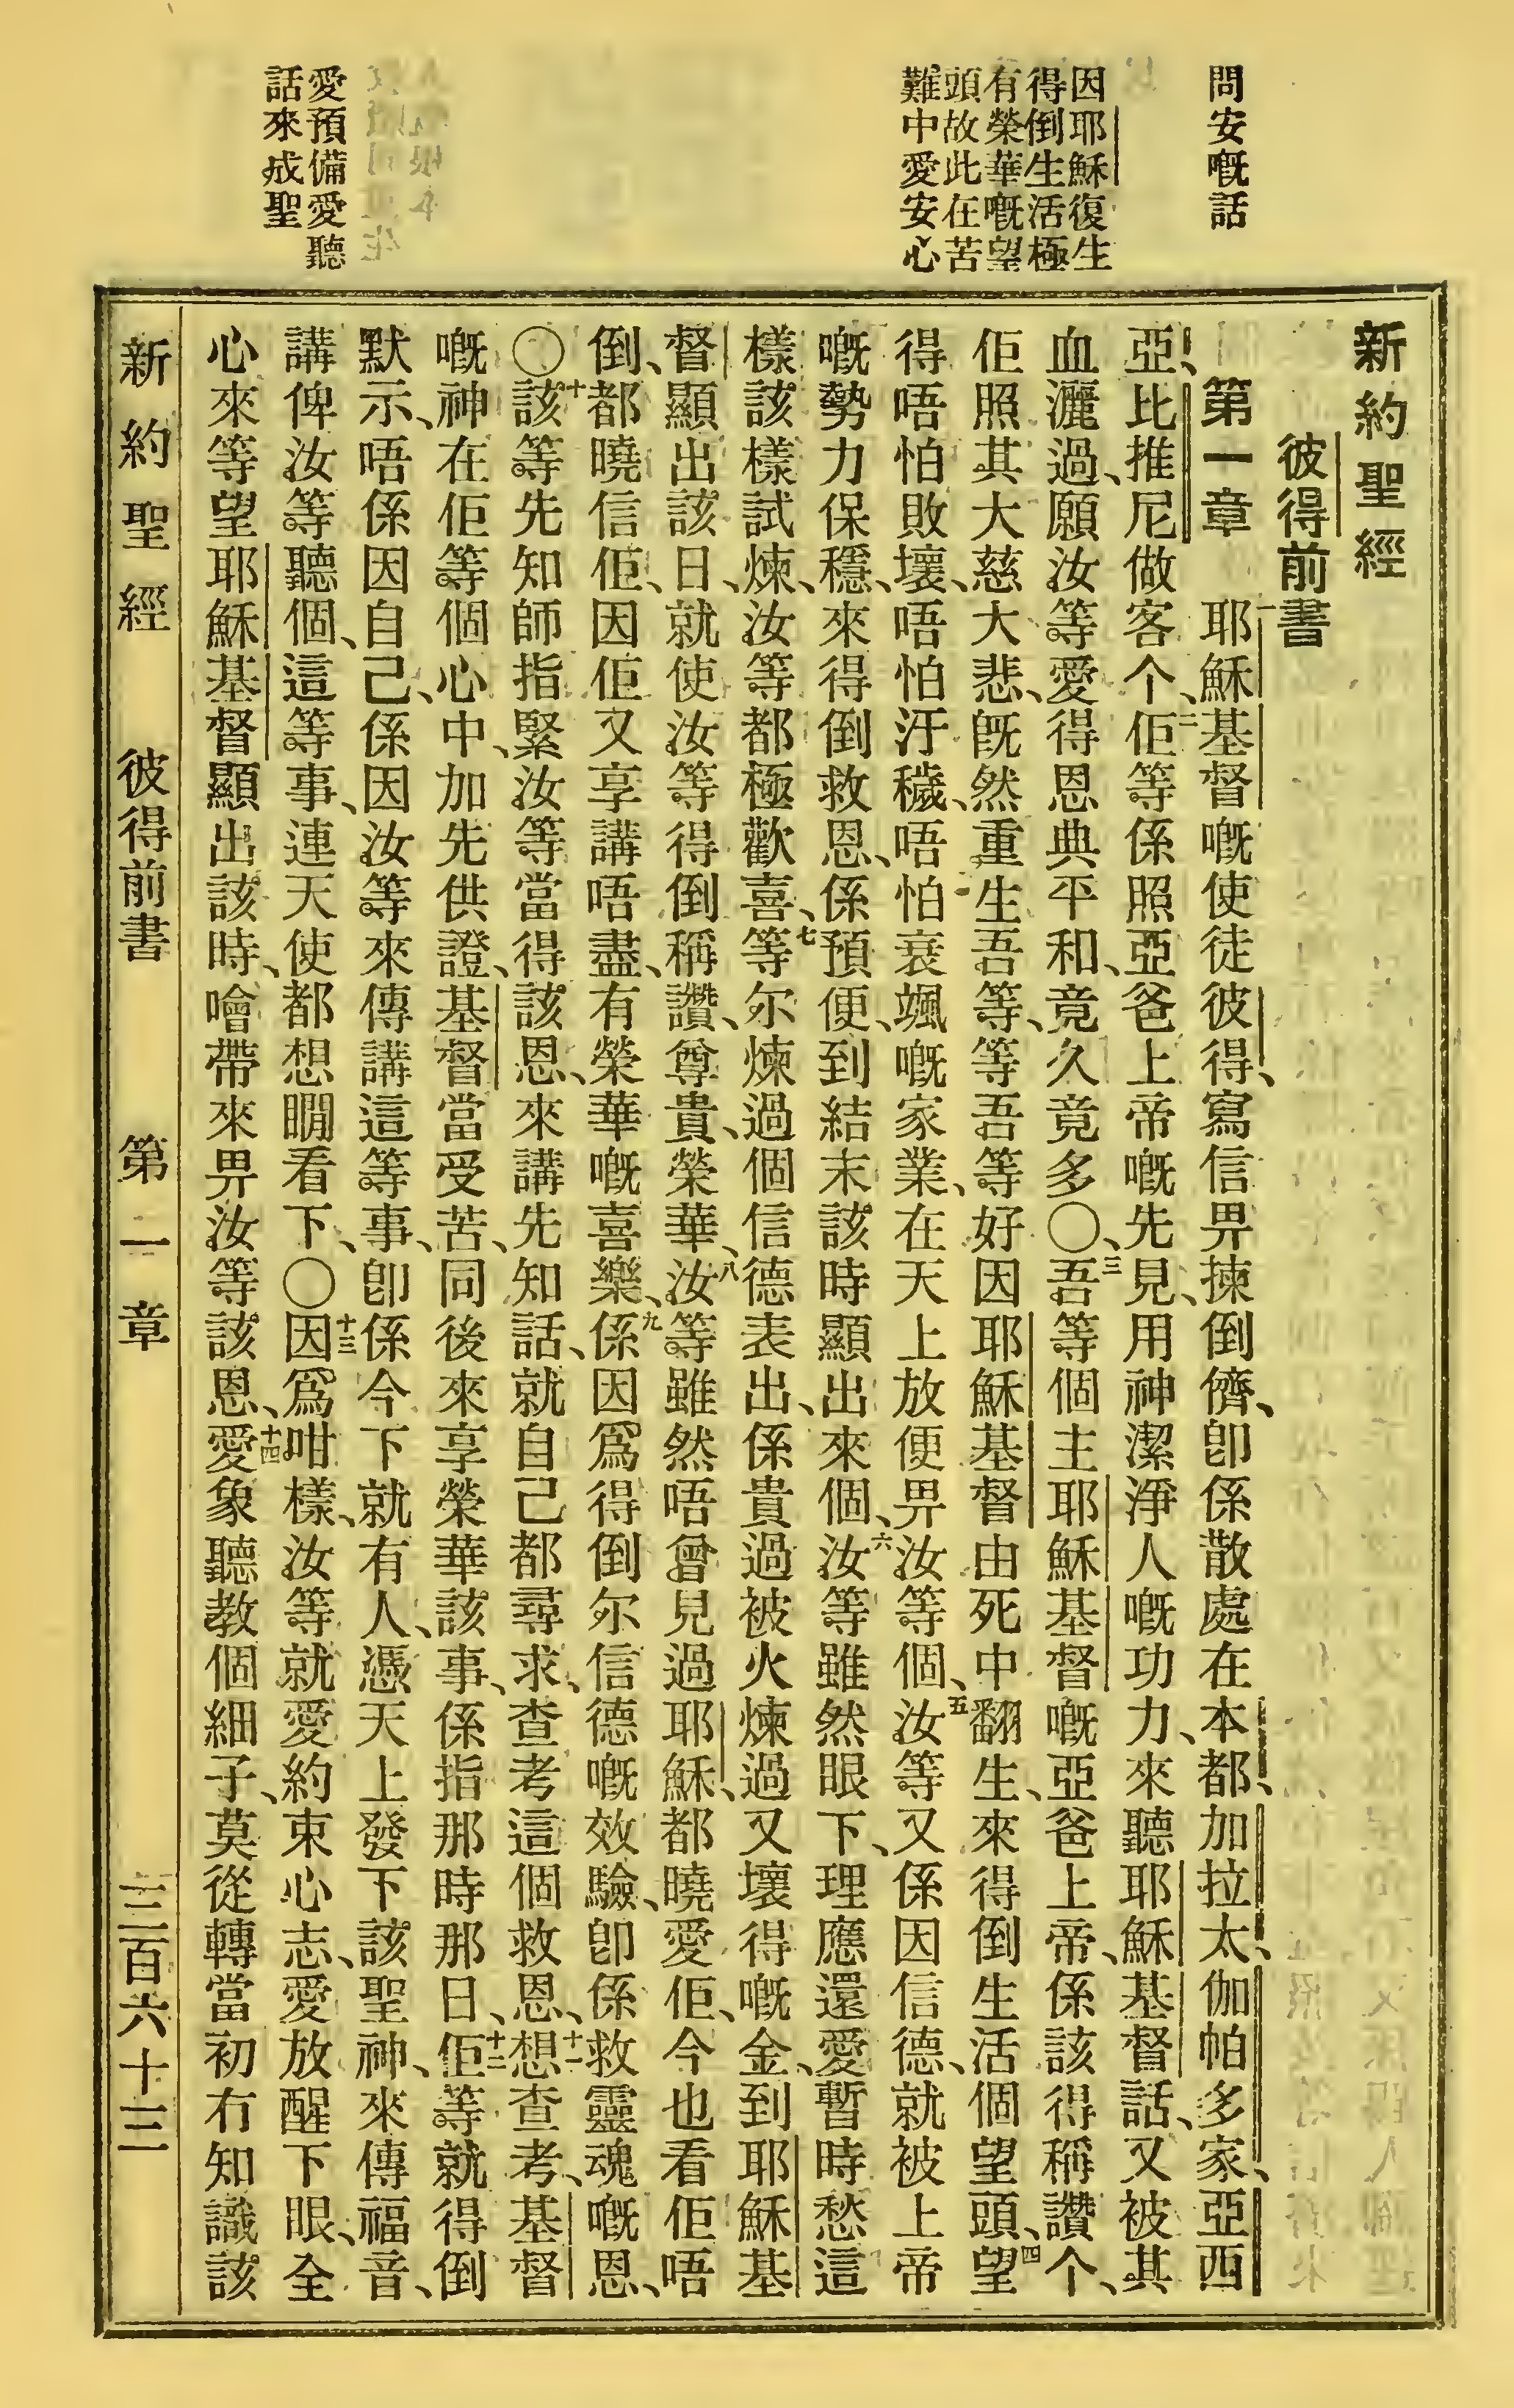 問安嘅話
因耶穌復生
得倒生活極
有榮華嘅望
頭故此在苦
難中愛安心
愛預備愛聽
話來成聖
新約聖經
彼得前書
第一章 一耶穌基督嘅使徒彼得、寫信畀揀倒儕、卽係散處在本都、加拉太、伽帕多家、亞西
亞、比推尼做客个、二佢等係照亞爸上帝嘅先見、用神潔淨人嘅功力、來聽耶穌基督話、又被其
血灑過、願汝等愛得恩典平和、竟久竟多、〇三吾等個主耶穌基督嘅亞爸上帝、係該得稱讚个、
佢照其大慈大悲、旣然重生吾等、等吾等好因耶穌基督由死中翻生、來得倒生活個望頭、四望
得唔怕敗壞、唔怕汙穢、唔怕衰颯嘅家業、在天上放便畀汝等個、五汝等又係因信德、就被上帝
嘅勢力保穩、來得倒救恩、係預便、到結末該時顯出來個、六汝等雖然眼下、理應還愛暫時愁這
樣該樣試煉、汝等都極歡喜、七等尔煉過個信德表出、係貴過被火煉過又壞得嘅金、到耶穌基
督顯出該日、就使汝等得倒稱讚、尊貴、榮華、八汝等雖然唔曾見過耶穌、都曉愛佢、今也看佢唔
倒、都曉信佢、因佢又享講唔盡、有榮華嘅喜樂、九係因爲得倒尔信德嘅效驗、卽係救靈魂嘅恩、
〇十該等先知師指緊汝等當得該恩、來講先知話、就自己都尋求、查考這個救恩、十一想查考、基督
嘅神在佢等個心中、加先供證、基督當受苦、同後來享榮華該事、係指那時那日、十二佢等就得倒
默示、唔係因自己、係因汝等來傳講這等事、卽係今下就有人、憑天上發下該聖神、來傳福音、
講俾汝等聽個、這等事、連天使都想瞯看下、〇十三因爲咁樣、汝等就愛約束心志、愛放醒下眼、全
心來等望耶穌基督顯出該時、噲帶來畀汝等該恩、十四愛象聽教個細子、莫從轉當初冇知識該
新約聖經 彼得前書 第一章 三百六十三